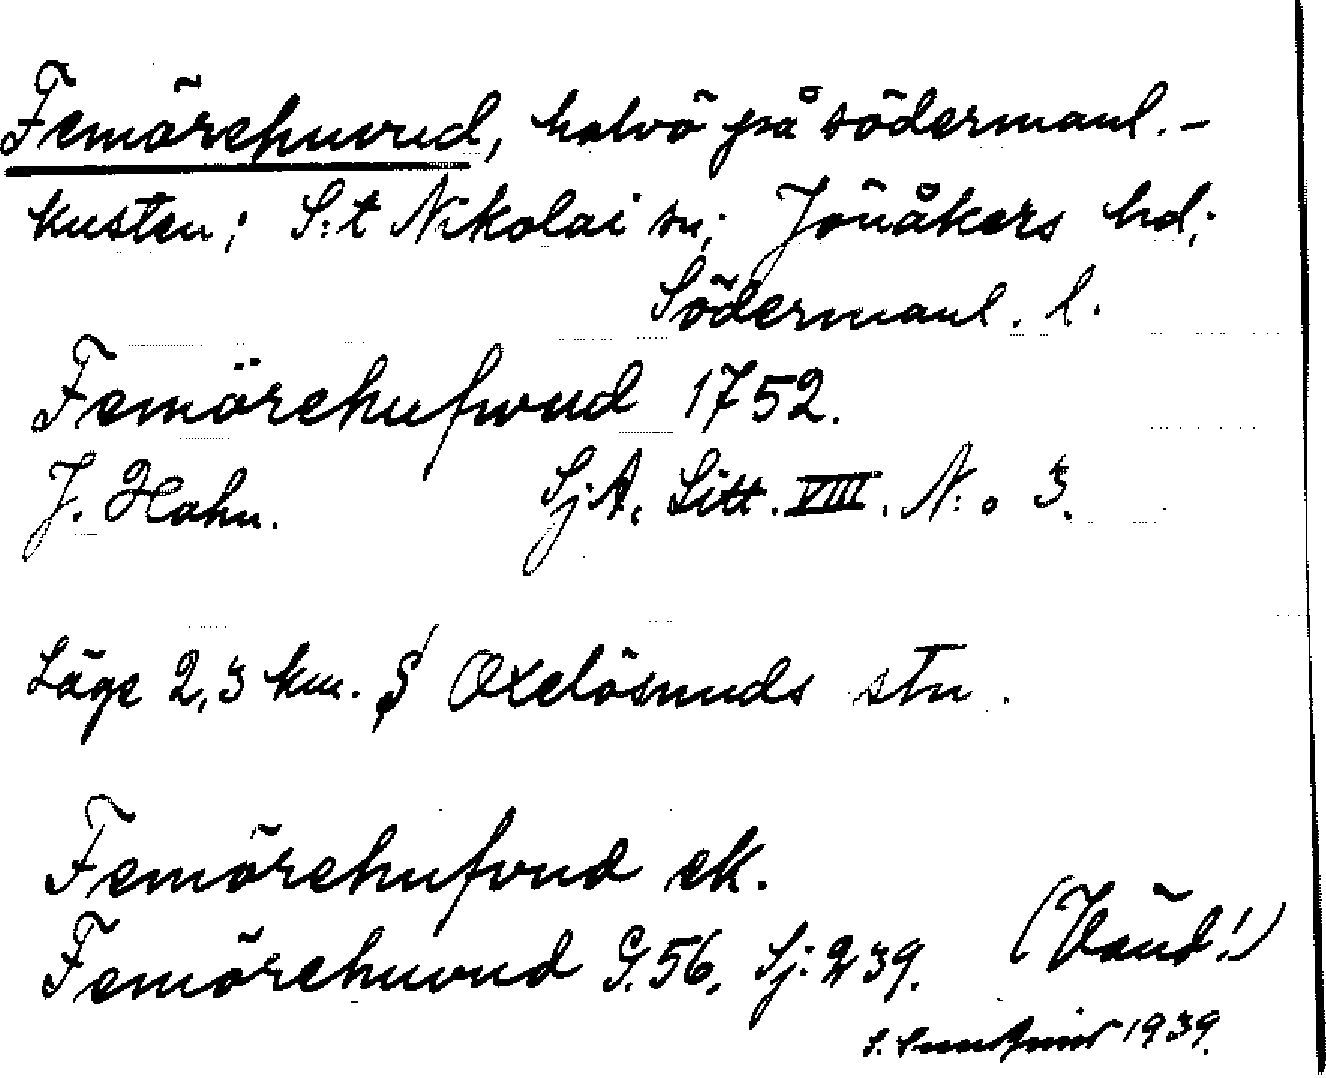 Femörehuvud, halvö på södermanl.-
kusten; S:t Nikolai sn; Jönåkers hd;
Södermanl. l.
Femörehufwud 1752.
J. Hahn. SjA. Litt. VIII. N:o 3.
Läge 2,3 km. S Oxelösunds stn.
Femörehufvud ek.
Femörehuvud G.56. Sj:239. (Vänd!)
S. 1939.